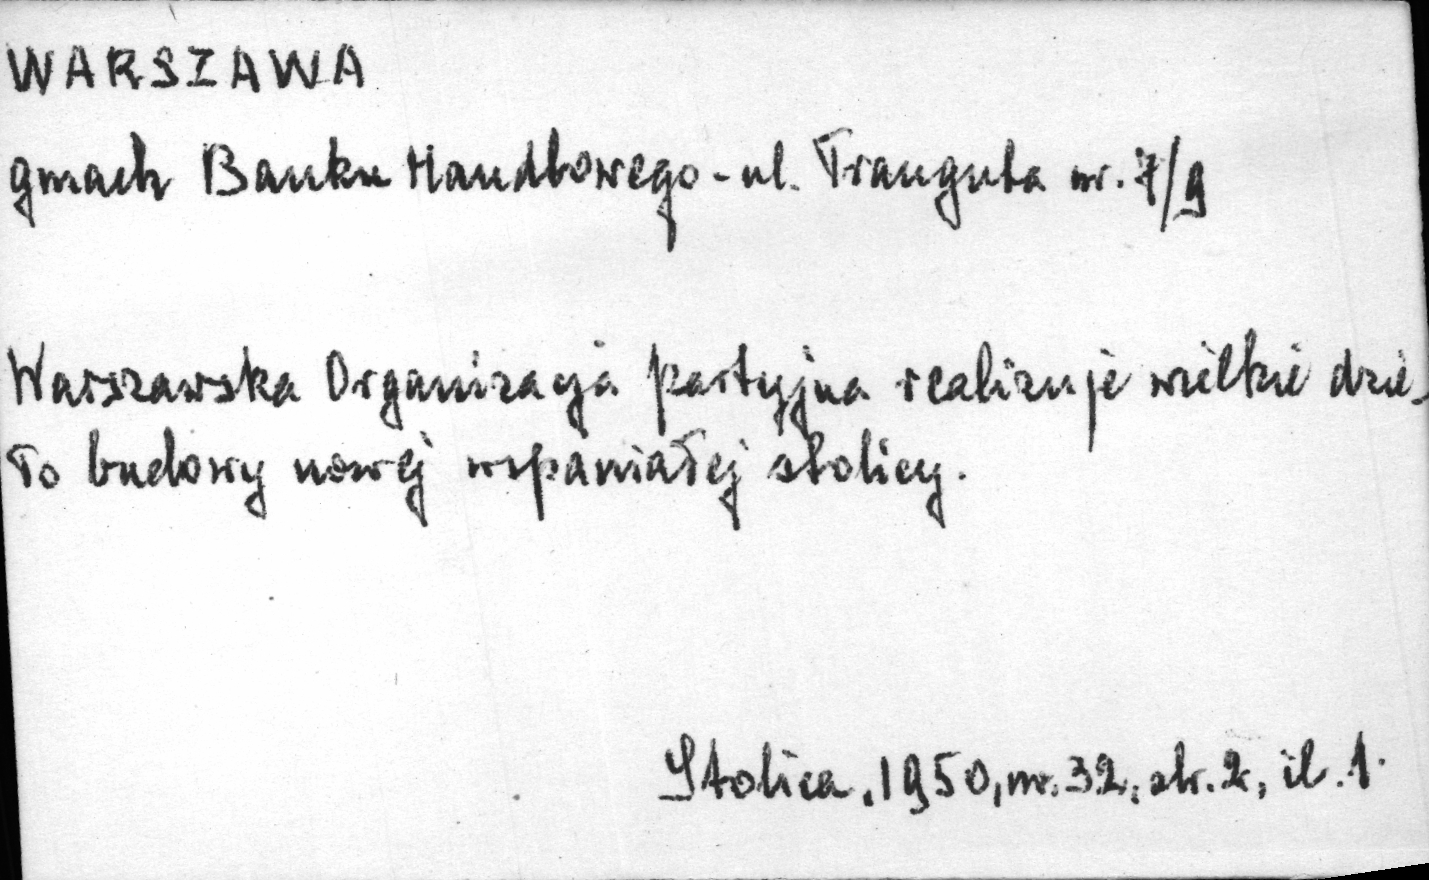 WARSZAWA
gmach Banku Handlowego - ul. Traugutta nr. 7/9
Warszawska Organizacja partyjna realizuje wielkie dzie-
ło budowy nowej wspaniałej stolicy.
Stolica, 1950, nr. 32, str. 2, il. 1.